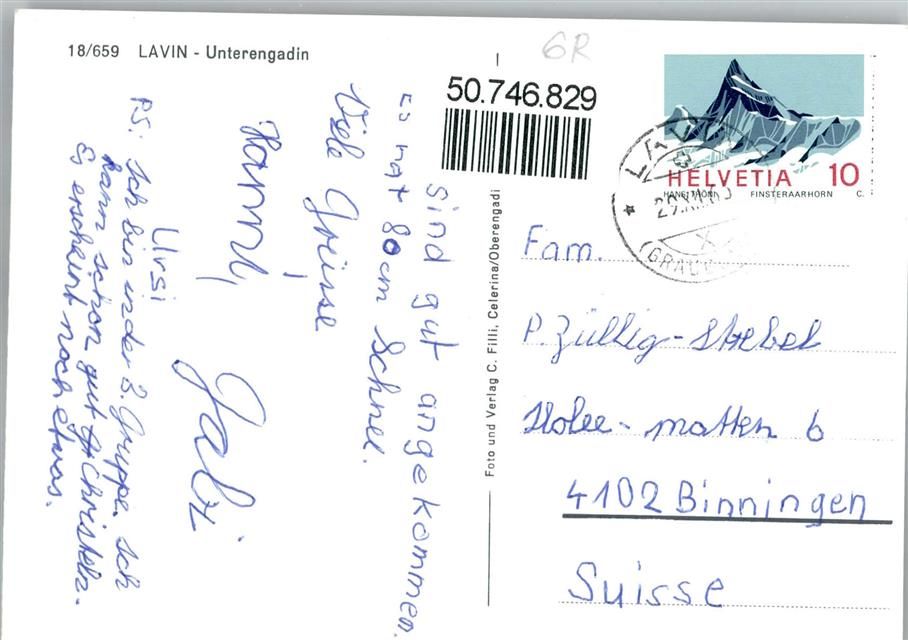 18/659 LAVIN - Unterengadin
6R
50.746.829
HELVETIA 10
HANS THÖNI FINSTERAARHORN C.
LAVIN
(GRAUB
sind gut angekommen.
Es hat 80cm Schnee.
Viele Grüsse
Hanni,
Ursi
PS: Ich bin in der 3. Gruppe. Ich
kann schon gut
Es erscheint noch etwas.
Foto und Verlag C. Filli, Celerina/Oberengadi
Fam.
P. Züllig-Strebel
Holee-matten 6
4102 Binningen
Suisse